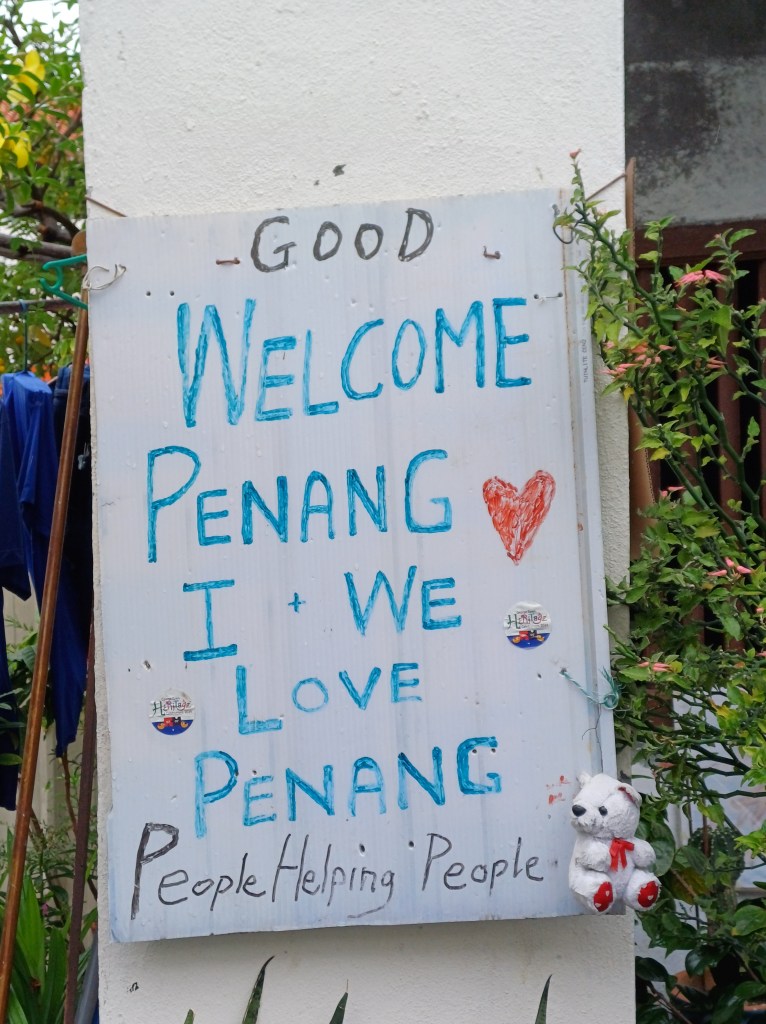 GOOD
WELCOME
PENANG
I + WE
LOVE
PENANG
People Helping People
Heritage
Heritage